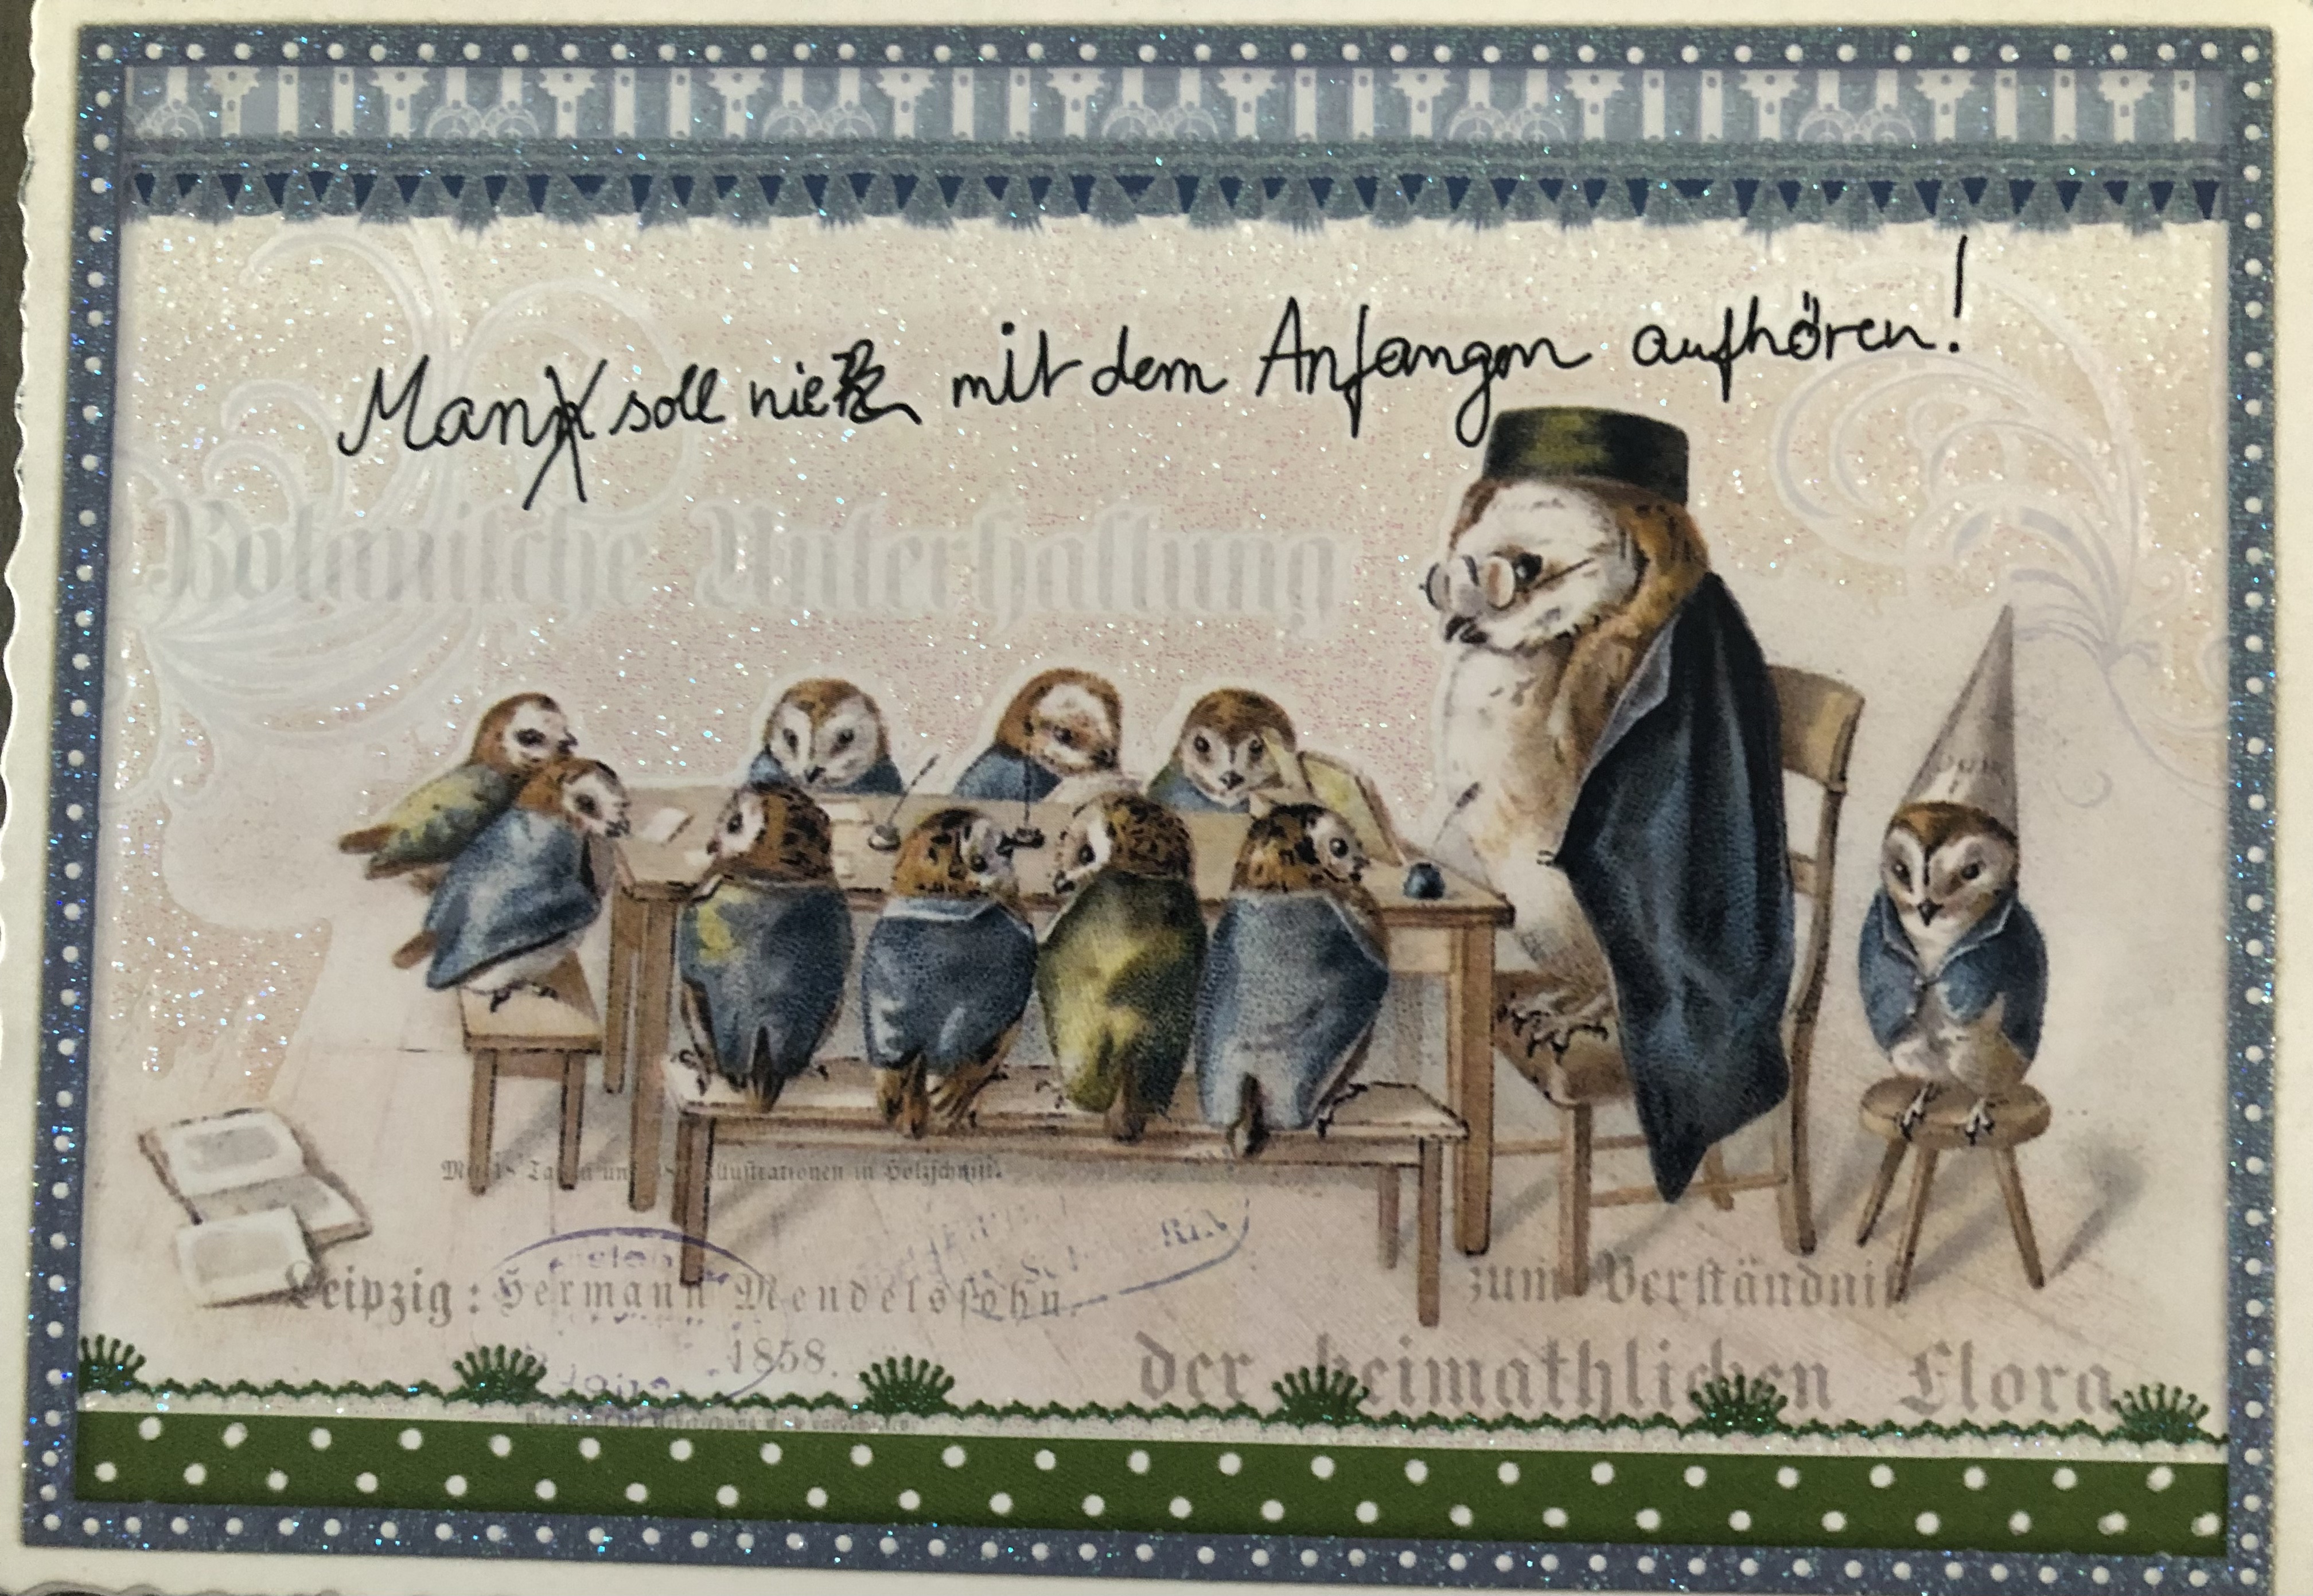 Man soll nie mit dem Anfangen aufhören!
Botanische Unterhaltung
Illustrationen in Holzschnitt.
Leipzig: Hermann Mendelssohn.
1858.
zum Verständnis
der heimathlichen Flora